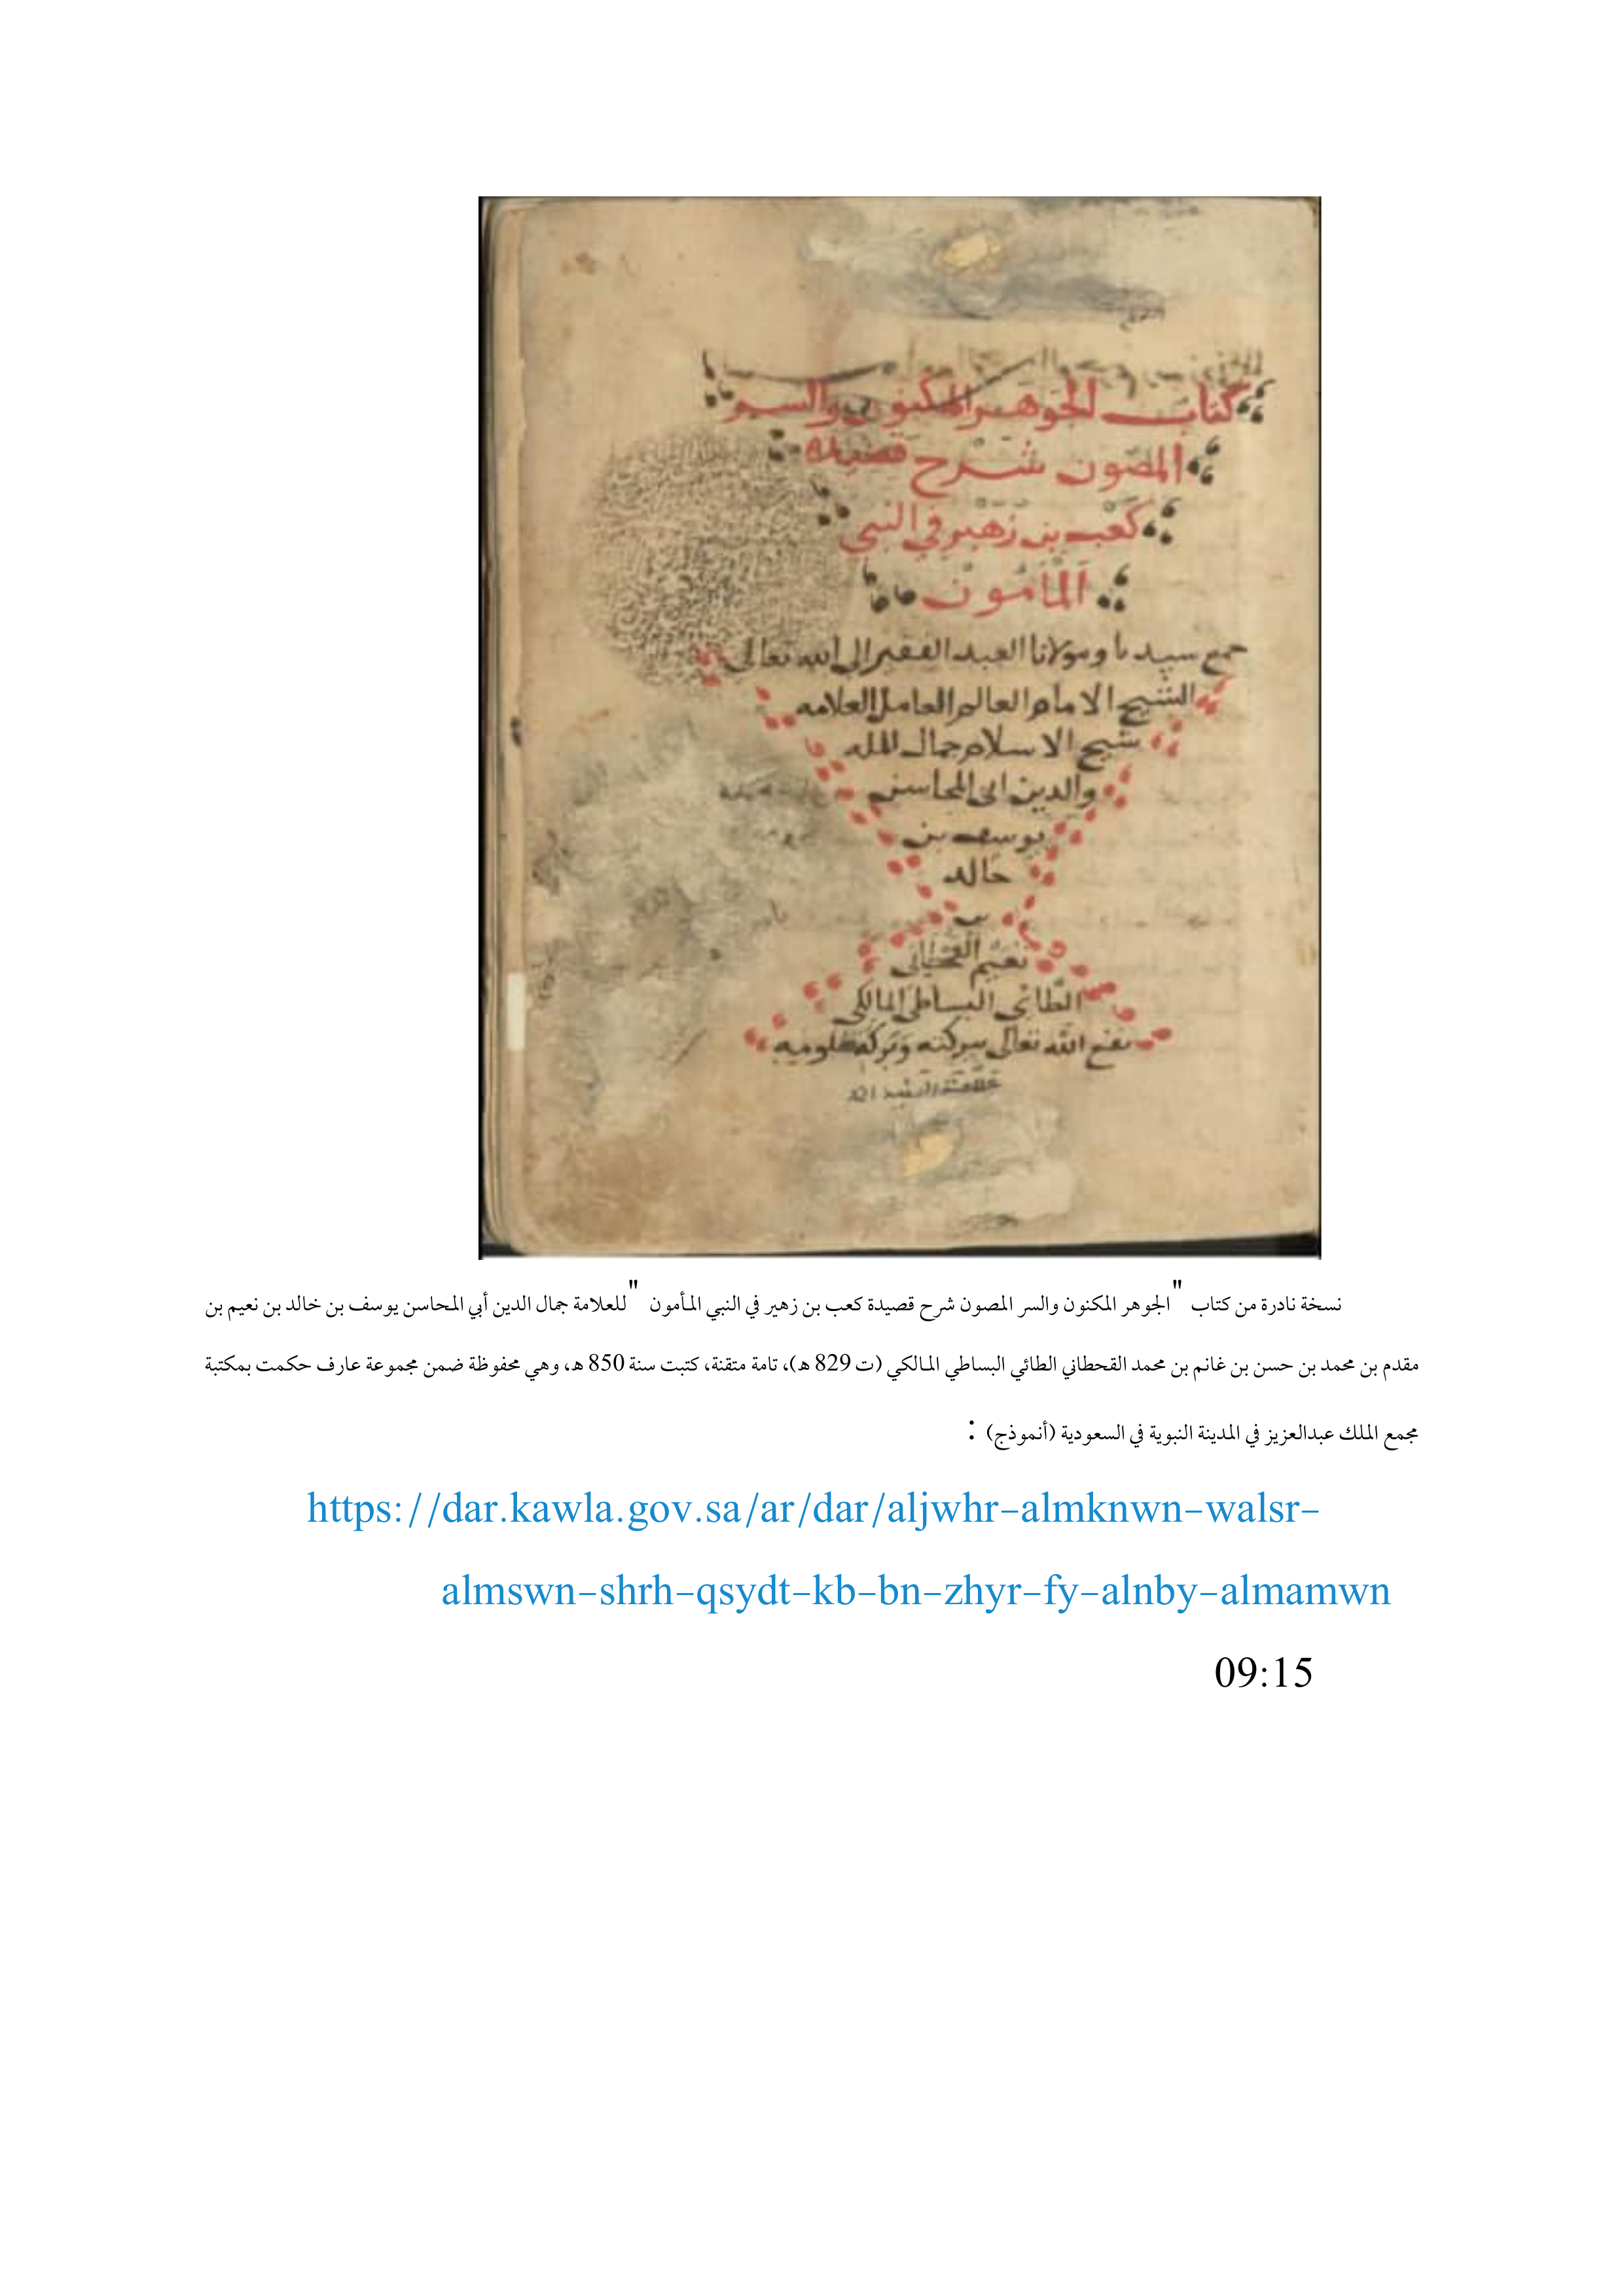 كتاب الجوهر المكنون والسر
المصون شرح قصيدة
كعب بن زهير في النبي
المأمون
جمع سيدنا ومولانا العبد الفقير الى الله تعالى
الشيخ الامام العالم العامل العلامه
شيخ الاسلام جمال المله
والدين ابى المحاسن
يوسف بن
خالد
بن
نعيم القحطاني
الطائي البساطي المالكي
نفع الله تعالى ببركته وبركة علومه
نسخة نادرة من كتاب "الجوهر المكنون والسر المصون شرح قصيدة كعب بن زهير في النبي المأمون "للعلامة جمال الدين أبي المحاسن يوسف بن خالد بن نعيم بن
مقدم بن محمد بن حسن بن غانم بن محمد القحطاني الطائي البساطي المالكي (ت 829 هـ)، تامة متقنة، كتبت سنة 850 هـ، وهي محفوظة ضمن مجموعة عارف حكمت بمكتبة
مجمع الملك عبدالعزيز في المدينة النبوية في السعودية (أنموذج) :
https://dar.kawla.gov.sa/ar/dar/aljwhr-almknwn-walsr-
almswn-shrh-qsydt-kb-bn-zhyr-fy-alnby-almamwn
09:15